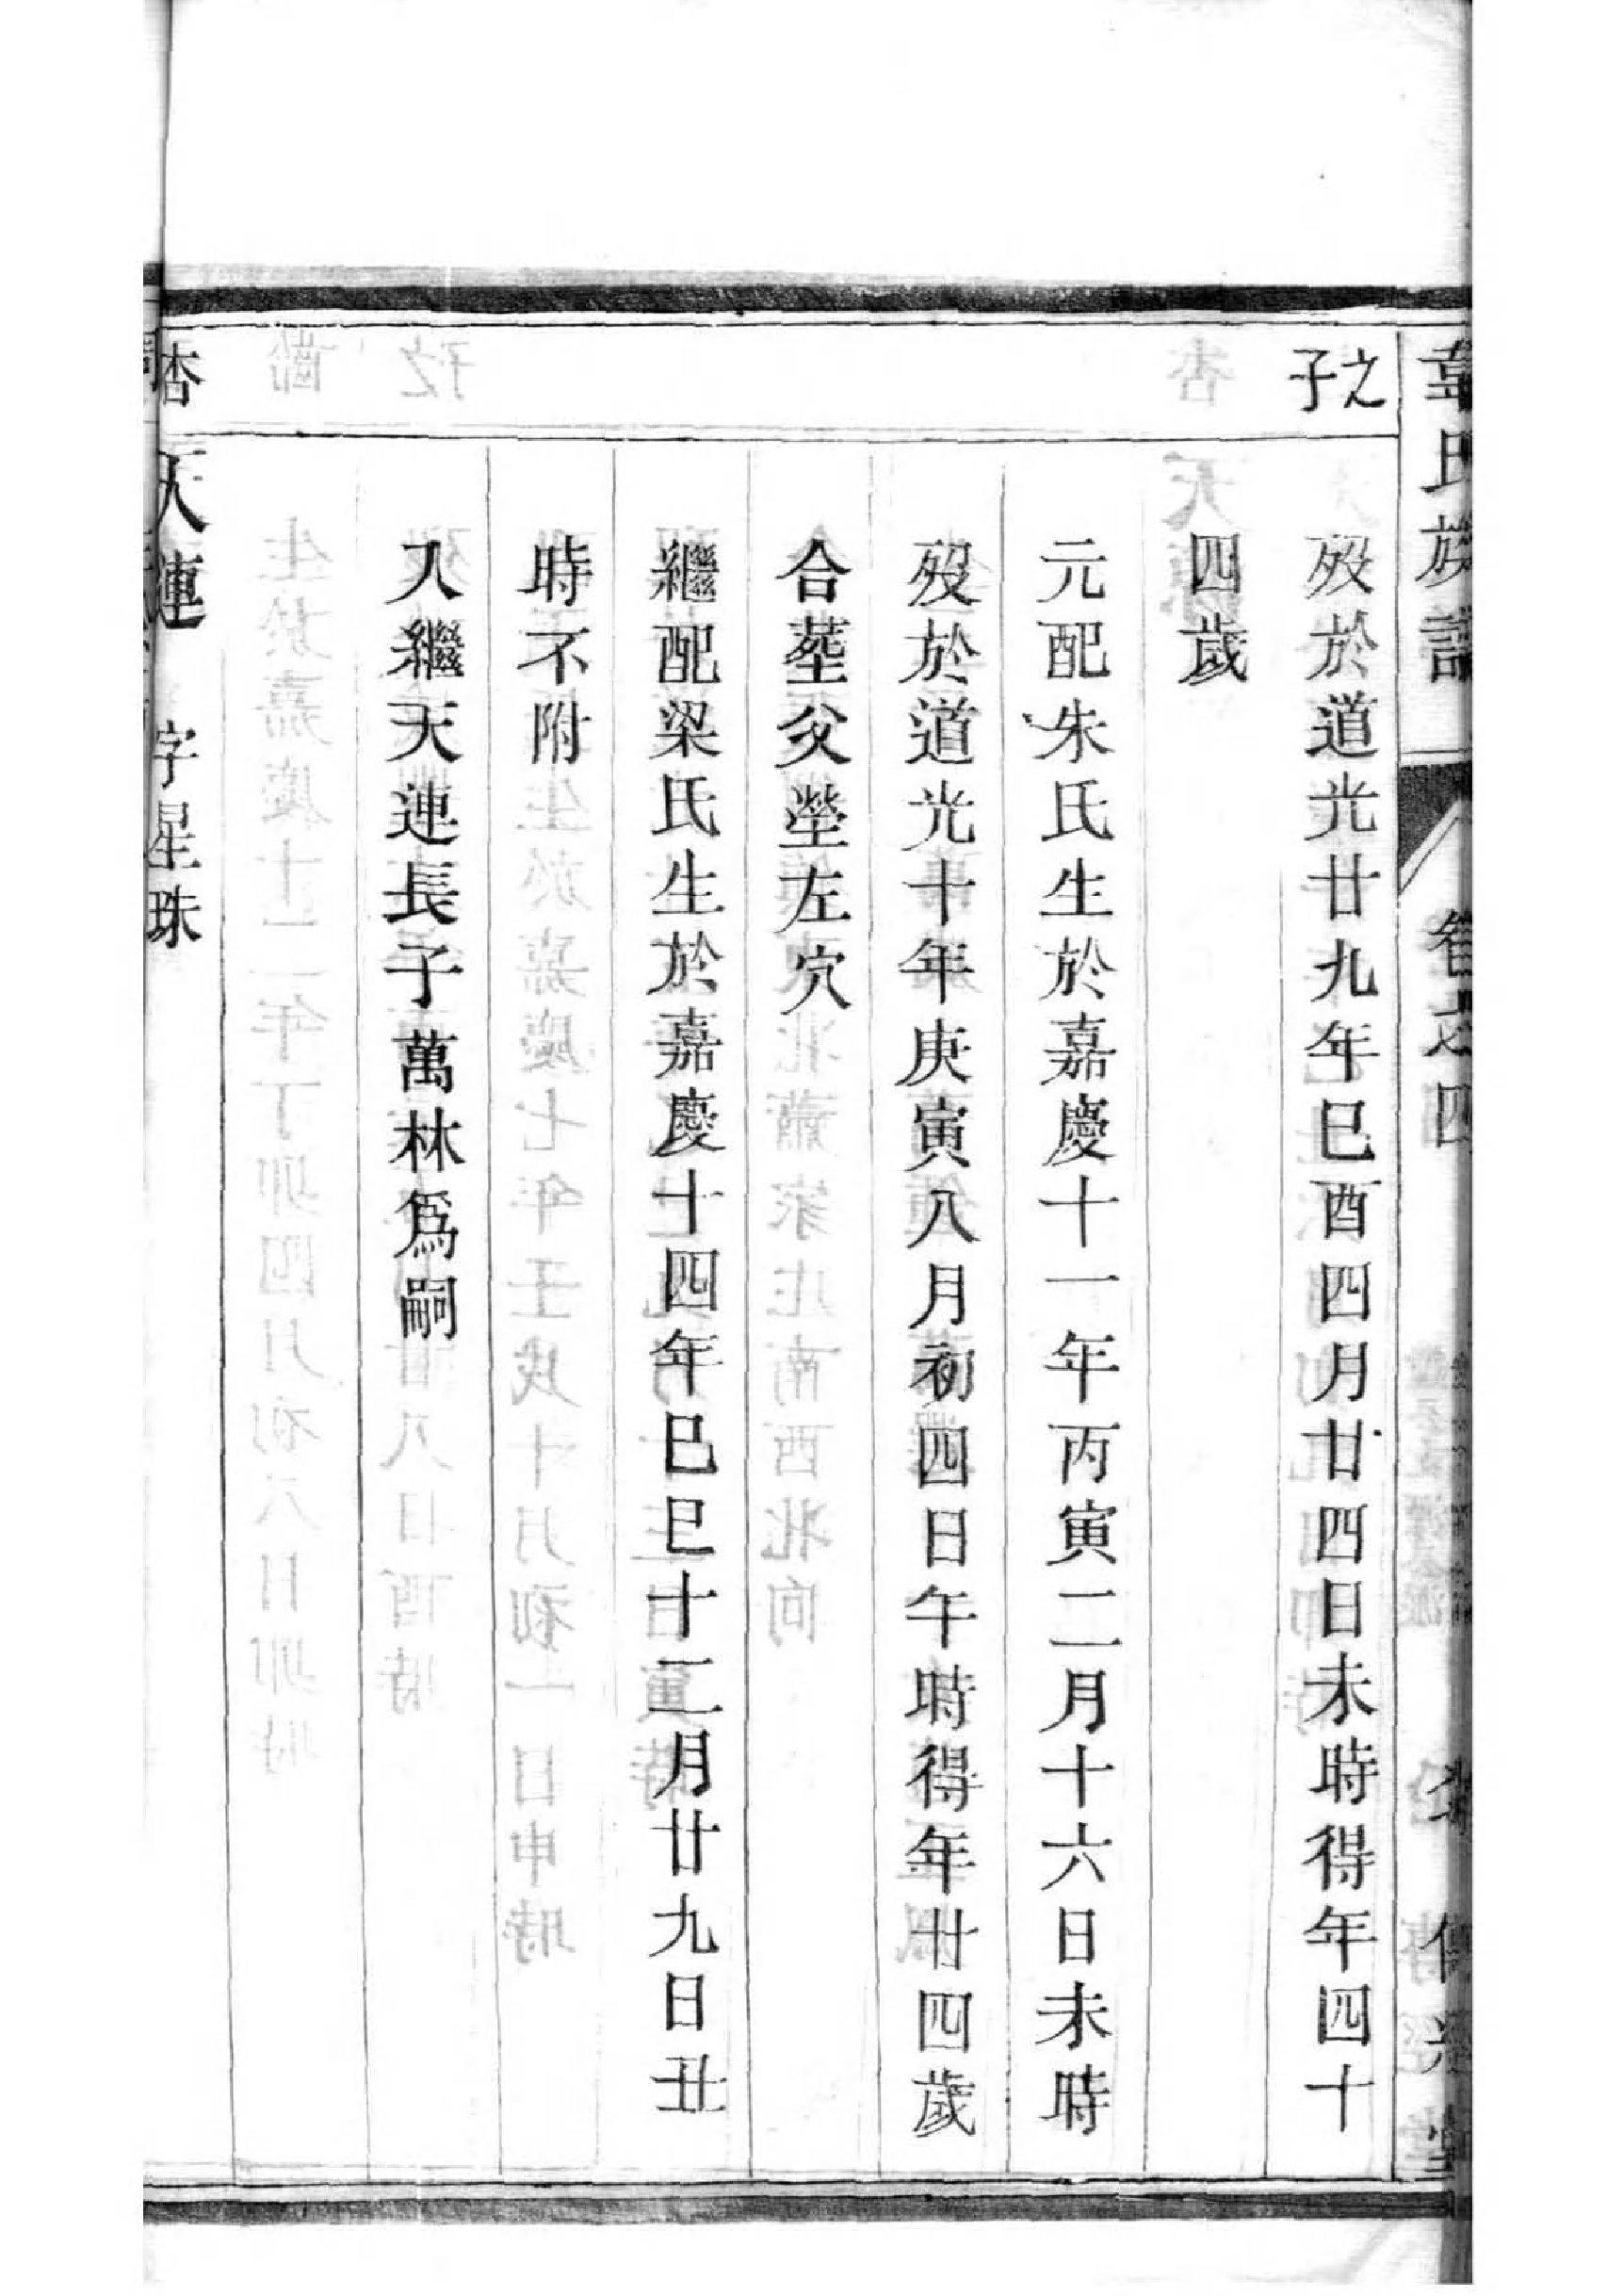 韋氏族譜 卷之四
之子
歿於道光廿九年巳酉四月廿四日未時得年四十
四歲
元配朱氏生於嘉慶十一年丙寅二月十六日未時
歿於道光十年庚寅八月初四日午時得年廿四歲
合塟父塋左穴
繼配梁氏生於嘉慶十四年巳巳十二月廿九日丑
時不附
入繼天連長子萬林為嗣
杏
天連 字星珠